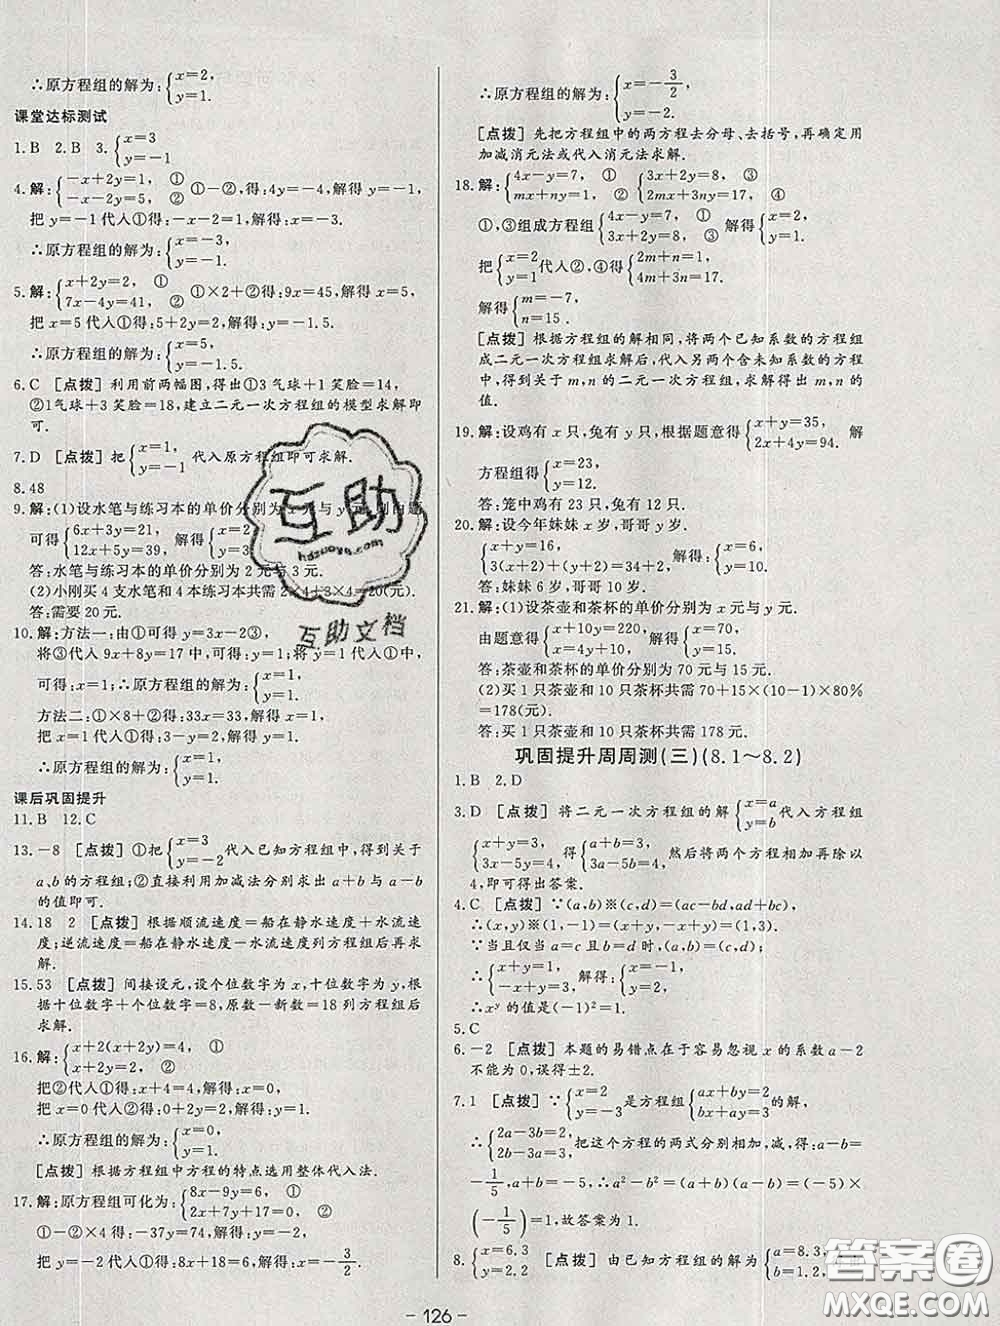 ∴原方程组的解为:{x=2, y=1.
课堂达标测试
1.B 2.B 3.{x=3 y=-1
4.解:{-x+2y=1, ① -x-2y=5, ② ①-②,得:4y=-4,解得:y=-1.
把 y=-1代入①得:-x-2=1,解得:x=-3.
∴原方程组的解为:{x=-3, y=-1.
5.解:{x+2y=2, ① 7x-4y=41, ② ①×2+②得:9x=45,解得:x=5,
把 x=5代入①得:5+2y=2,解得:y=-1.5.
∴原方程组的解为:{x=5, y=-1.5.
6.C [点拨] 利用前两幅图,得出①3气球+1笑脸=14,
②1气球+3笑脸=18,建立二元一次方程组的模型求解即
可.
7.D [点拨] 把{x=1, y=-1 代入原方程组即可求解.
8.48
9.解:(1)设水笔与练习本的单价分别为 x 元与 y
可得{6x+3y=21, 12x+5y=39, 解得{x=2, y=3.
答:水笔与练习本的单价分别为 2 元与 3 元.
(2)小刚买 4 支水笔和 4 本练习本共需 2×4+3×4=20(元).
答:需要 20 元.
10.解:方法一:由①可得 y=3x-2③,
将③代入 9x+8y=17 中,可得 x=1,将 x=1 代入①中,
可得:y=1;∴原方程组的解为:{x=1, y=1.
方法二:①×8+②得:33x=33,解得:x=1,
把 x=1 代入①得:3-y=2,解得:y=1.
∴原方程组的解为:{x=1, y=1.
课后巩固提升
11.B 12.C
13.-8 [点拨] ①把{x=3 y=-2 代入已知方程组中,得到关于
a,b的方程组;②直接利用加减法分别求出 a+b 与 a-b
的值即可.
14.18 2 [点拨] 根据顺流速度=船在静水速度+水流速
度;逆流速度=船在静水速度-水流速度列方程组后再求
解.
15.53 [点拨] 间接设元,设个位数字为 x,十位数字为 y,根
据十位数字+个位数字=8,原数-新数=18列方程组后
求解.
16.解:{x+2(x+2y)=4, ① x+2y=2, ②
把②代入①得:x+4=4,解得:x=0,
把 x=0 代入②得:0+2y=2,解得:y=1,
∴原方程组的解为:{x=0, y=1.
[点拨] 根据方程组中方程的特点选用整体代入法.
17.解:原方程组可化为:{8x-9y=6, ① 2x+7y=-17, ②
①-②×4得:-37y=74,解得:y=-2,
把 y=-2 代入①得:8x+18=6,解得:x=-3/2.
∴原方程组的解为:{x=-3/2, y=-2.
[点拨] 先把方程组中的两方程去分母、去括号,再确定用
加减消元法或代入消元法求解.
18.解:{4x-y=7, ① mx+ny=1, ② {3x+2y=8, ③ 2mx+3ny=17, ④
①,③组成方程组{4x-y=7, ① 3x+2y=8, ③ 解得{x=2, y=1.
把{x=2 y=1 代入②,④得{2m+n=1, 4m+3n=17.
解得{m=-7, n=15.
[点拨] 根据方程组的解相同,将两个已知系数的方程组
成二元一次方程组求解后,代入另两个含未知系数的方程
中,得到关于 m,n 的二元一次方程组,求解得出 m,n 的
值.
19.解:设鸡有 x 只,兔有 y 只,根据题意得{x+y=35, 2x+4y=94. 解
方程组得{x=23, y=12.
答:笼中鸡有 23 只,兔有 12 只.
20.解:设今年妹妹 x 岁,哥哥 y 岁.
{x+y=16, 3(x+2)+(y+2)=34+2, 解得:{x=6, y=10.
答:妹妹 6 岁,哥哥 10 岁.
21.解:(1)设茶壶和茶杯的单价分别为 x 元与 y 元.
由题意得{2x+10y=220, x=4y+10, 解得{x=70, y=15.
答:茶壶和茶杯的单价分别为 70 元与 15 元.
(2)买 1 只茶壶和 10 只茶杯共需 70+15×(10-1)×80%
=178(元).
答:买 1 只茶壶和 10 只茶杯共需 178 元.
巩固提升周周测(三)(8.1～8.2)
1.B 2.D
3.D [点拨] 将二元一次方程组的解{x=a y=b 代入方程组
{x+y=3, 3x-5y=4, 得{a+b=3, 3a-5b=4. 然后将两个方程相加再除以
4,即可得出答案.
4.C [点拨] ∵(a,b)※(c,d)=(ac-bd,ad+bc),
∴(x,y)※(1,-1)=(x+y,-x+y)=(1,3).
∵当且仅当 a=c 且 b=d 时,(a,b)=(c,d);
∴{x+y=1, -x+y=3. 解得:{x=-1, y=2.
∴xʸ 的值是(-1)²=1.
5.C
6.-2 [点拨] 本题的易错点在于容易忽视 x 的系数 a-2
不能为 0,误得±2.
7.1 [点拨] ∵{x=2 y=-3 是方程组{ax+by=2 bx+ay=3 的解,
∴{2a-3b=2, 2b-3a=3. 把这个方程的两式分别相加,减得:a-b=
-1/5,a+b=-5,∴a²-b²=(a+b)(a-b)=(-5)×
(-1/5)=1,故答案为 1.
8.{x=6.3 y=2.2 [点拨] 由已知方程组的解为{a=8.3, b=1.2,
- 126 -
互助
hdzuoye.com
互助文档
答案圈
MXQE.COM